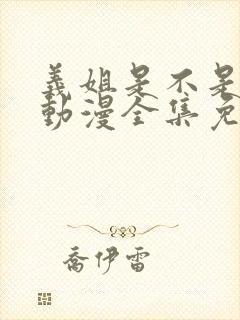 義姐是不是
動漫全集免
喬伊雷